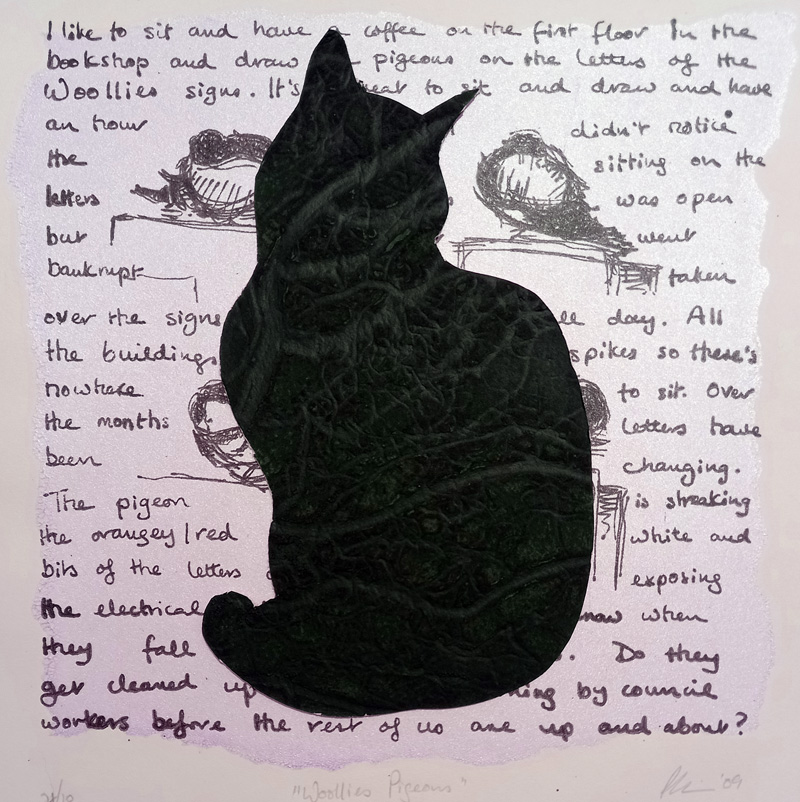 I like to sit and have a coffee on the first floor in the
bookshop and draw pigeons on the letters of the
Woollies signs. It's to sit and draw and have
an hour didn't notice
the sitting on the
letters was open
but went
bankrupt taken
over the signs day. All
the buildings spikes so there's
nowhere to sit. Over
the months letters have
been changing.
The pigeon is streaking
the orangey/red white and
bits of the letters exposing
the electrical when
they fall Do they
get cleaned up by council
workers before the rest of us are up and about?
"Woollies Pigeons" '09